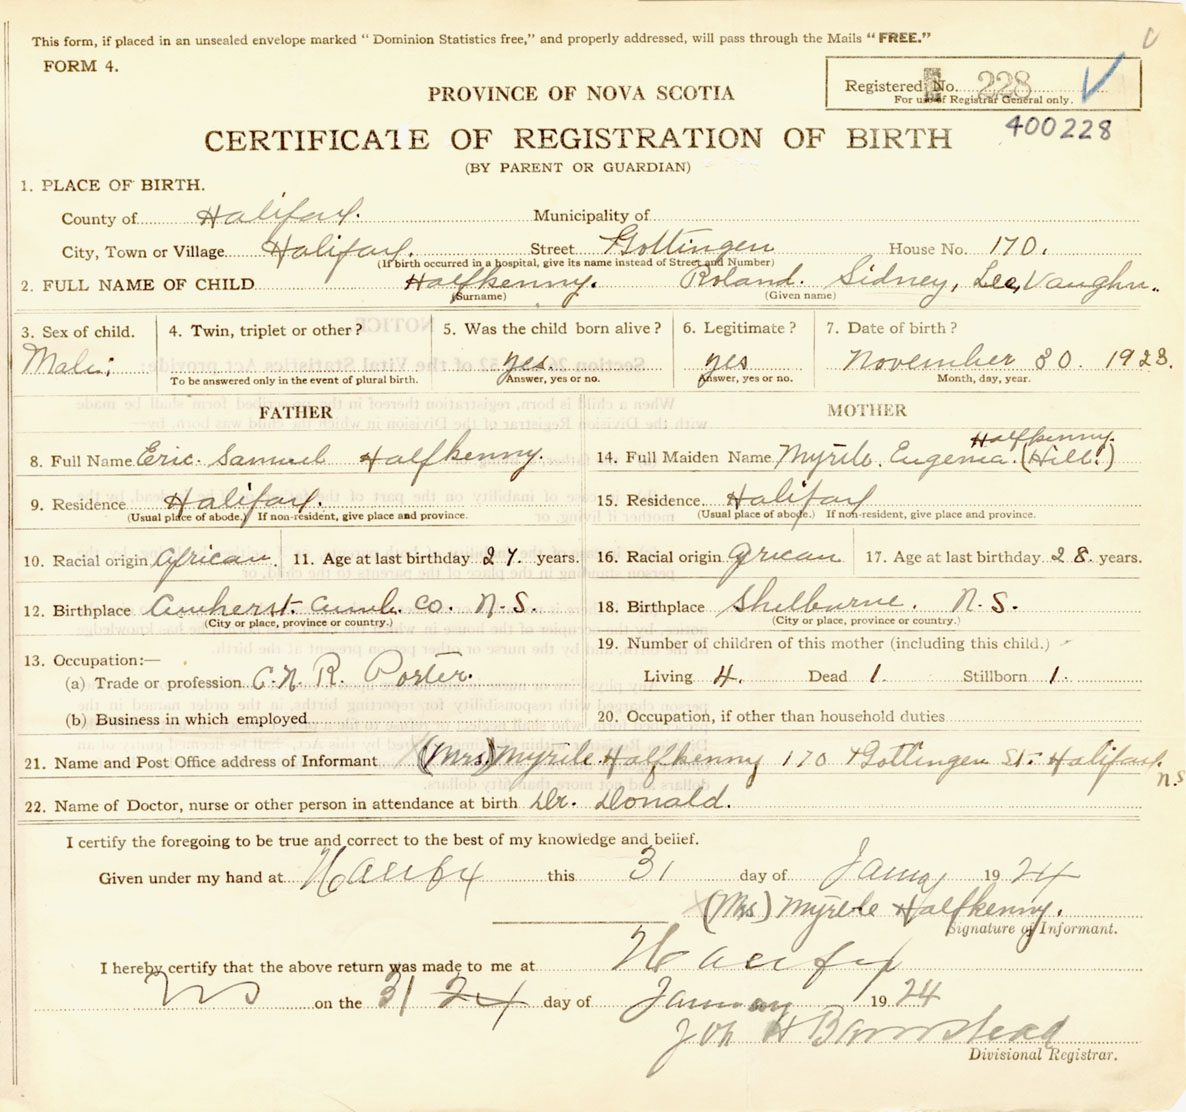 This form, if placed in an unsealed envelope marked " Dominion Statistics free," and properly addressed, will pass through the Mails " FREE."
FORM 4.
Registered No. 228
For use of Registrar General only.
PROVINCE OF NOVA SCOTIA
400228
CERTIFICATE OF REGISTRATION OF BIRTH
(BY PARENT OR GUARDIAN)
1. PLACE OF BIRTH.
County of Halifax. Municipality of
City, Town or Village Halifax. Street Gottingen House No. 170.
(If birth occurred in a hospital, give its name instead of Street and Number)
2. FULL NAME OF CHILD Halfkenny. Roland. Sidney, Lee, Vaughn.
(Surname) (Given name)
3. Sex of child. 4. Twin, triplet or other ? 5. Was the child born alive ? 6. Legitimate ? 7. Date of birth ?
Male. yes. yes November 30. 1923.
To be answered only in the event of plural birth. Answer, yes or no. Answer, yes or no. Month, day, year.
FATHER MOTHER
8. Full Name Eric. Samuel Halfkenny. 14. Full Maiden Name Myrtle. Eugenia. Halfkenny. (Hill.)
9. Residence Halifax. 15. Residence Halifax
(Usual place of abode.) If non-resident, give place and province. (Usual place of abode.) If non-resident, give place and province.
10. Racial origin African. 11. Age at last birthday 27. years. 16. Racial origin African 17. Age at last birthday 28. years.
12. Birthplace Amherst. Cumb. Co. N.S. 18. Birthplace Shelburne. N.S.
(City or place, province or country.) (City or place, province or country.)
13. Occupation:— 19. Number of children of this mother (including this child.)
(a) Trade or profession C.N.R. Porter. Living 4. Dead 1. Stillborn 1.
(b) Business in which employed 20. Occupation, if other than household duties
21. Name and Post Office address of Informant (Mrs.) Myrtle. Halfkenny 170 Gottingen St. Halifax. N.S
22. Name of Doctor, nurse or other person in attendance at birth Dr. Donald.
I certify the foregoing to be true and correct to the best of my knowledge and belief.
Given under my hand at Halifax this 31 day of January 1924
(Mrs) Myrtle Halfkenny.
Signature of Informant.
I hereby certify that the above return was made to me at Halifax
NS on the 31 24 day of January 1924
Divisional Registrar.